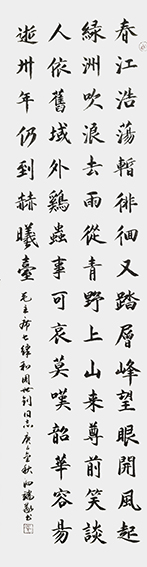 春江浩蕩暫徘徊又踏層峰望眼開風起
綠洲吹浪去雨從青野上山来尊前笑談
人依舊域外鷄蟲事可哀莫嘆韶華容易
逝卅年仍到赫曦臺
毛主席七律和周世釗同志庚子金秋